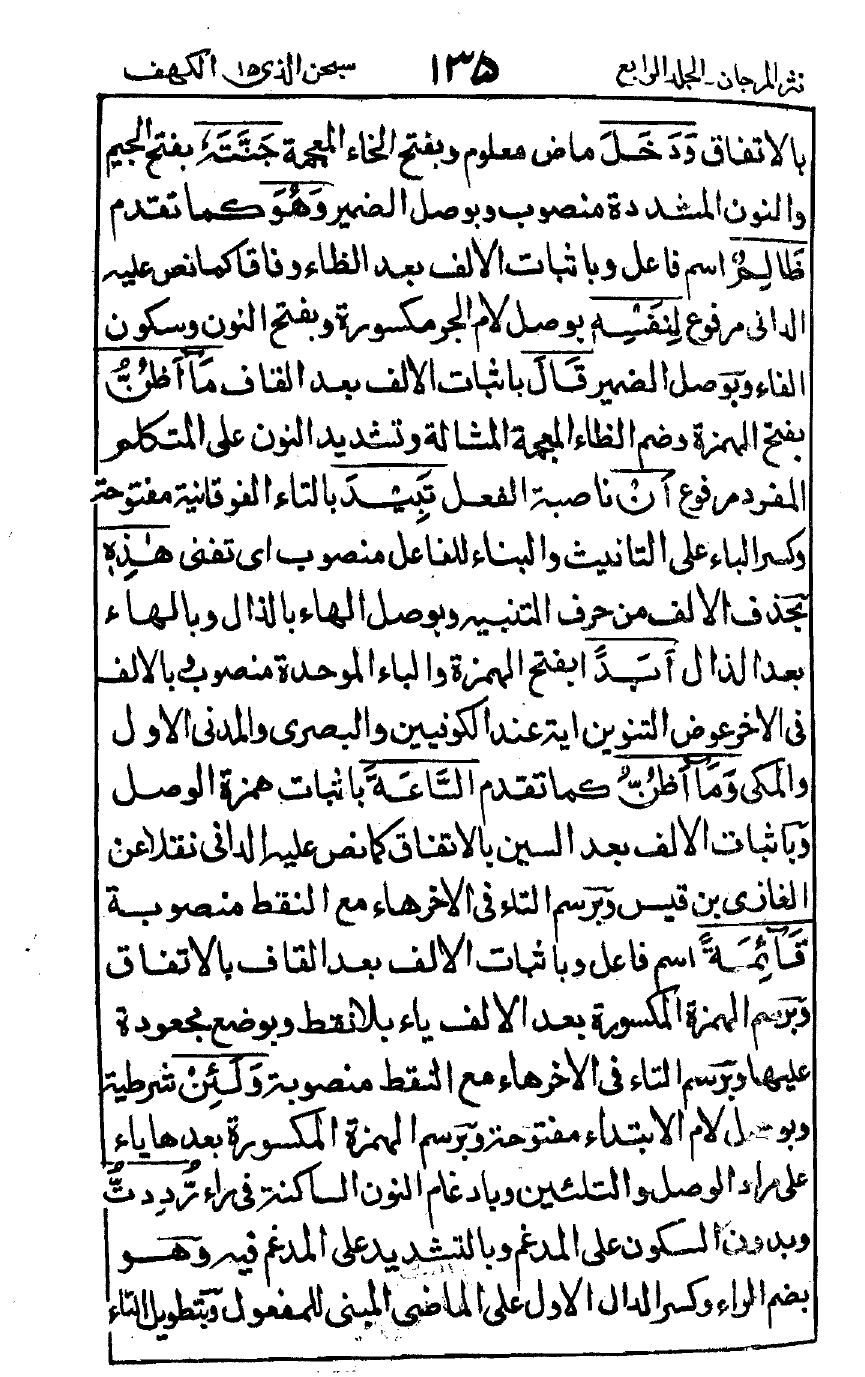 نثر المرجان - الجلد الرابع ١٣٥ سبحن الذى ١٥ الكهف
بالاتفاق وَدَخَلَ ماض معلوم وبفتح الخاء المعجمة جَنَّتَهٗ بفتح الجيم
والنون المشددة منصوب وبوصل الضمير وَهُوَ كما تقدم
ظَالِمٌ اسم فاعل وباثبات الالف بعد الظاء وفاقا كما نص عليه
الدانى مرفوع لِنَفْسِهٖ بوصل لام الجر مكسورة وبفتح النون وسكون
الفاء وبوصل الضمير قَالَ باثبات الالف بعد القاف مَآ اَظُنُّ
بفتح الهمزة وضم الظاء المعجمة المشالة وتشديد النون على المتكلم
المفرد مرفوع اَنْ ناصبة الفعل تَبِيْدَ بالتاء الفوقانية مفتوحة
وكسر الباء على التانيث والبناء للفاعل منصوب اى تفنى هٰذِهٖ
بحذف الالف من حرف التنبيه وبوصل الهاء بالذال وبالهاء
بعد الذال اَبَدًا بفتح الهمزة والباء الموحدة منصوب بالالف
فى الاخر عوض التنوين اية عند الكوفيين والبصرى والمدنى الاول
والمكى وَمَآ اَظُنُّ كما تقدم السَّاعَةَ باثبات همزة الوصل
وباثبات الالف بعد السين بالاتفاق كما نص عليه الدانى نقلا عن
الغازى بن قيس وبرسم التاء فى الاخر هاء مع النقط منصوبة
قَآئِمَةً اسم فاعل وباثبات الالف بعد القاف بالاتفاق
وبرسم الهمزة المكسورة بعد الالف ياء بلا نقط وبوضع مجعودة
عليها وبرسم التاء فى الاخر هاء مع النقط منصوبة وَلَئِنْ شرطية
وبوصل لام الابتداء مفتوحة وبرسم الهمزة المكسورة بعدها ياء
على مراد الوصل والتلئين وبادغام النون الساكنة فى راء رُّدِدتُّ
وبدون السكون على المدغم وبالتشديد على المدغم فيه وهو
بضم الراء وكسر الدال الاول على الماضى المبنى للمفعول وبتطويل التاء